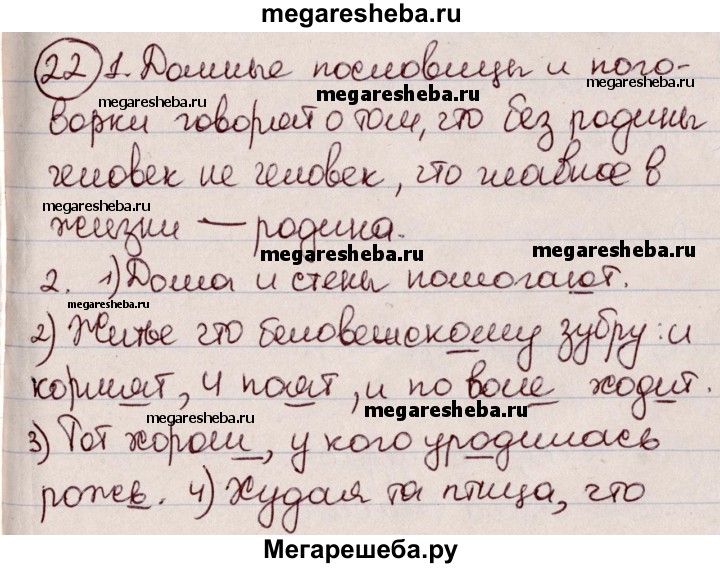 megaresheba.ru
22 1. Данные пословицы и пого-
megaresheba.ru
megaresheba.ru
ворки говорят о том, что без родины
megaresheba.ru
человек не человек, что главное в
megaresheba.ru
megaresheba.ru
жизни — родина.
megaresheba.ru
megaresheba.ru
2. 1) Дома и стены помогают.
2) Житье что беловешскому зубру: и
кормят, и поят, и по воле ходит.
megaresheba.ru
megaresheba.ru
3) Тот хорош, у кого уродилась
рожь. 4) Худая та птица, что
megaresheba.ru
megaresheba.ru
Мегарешеба.ру